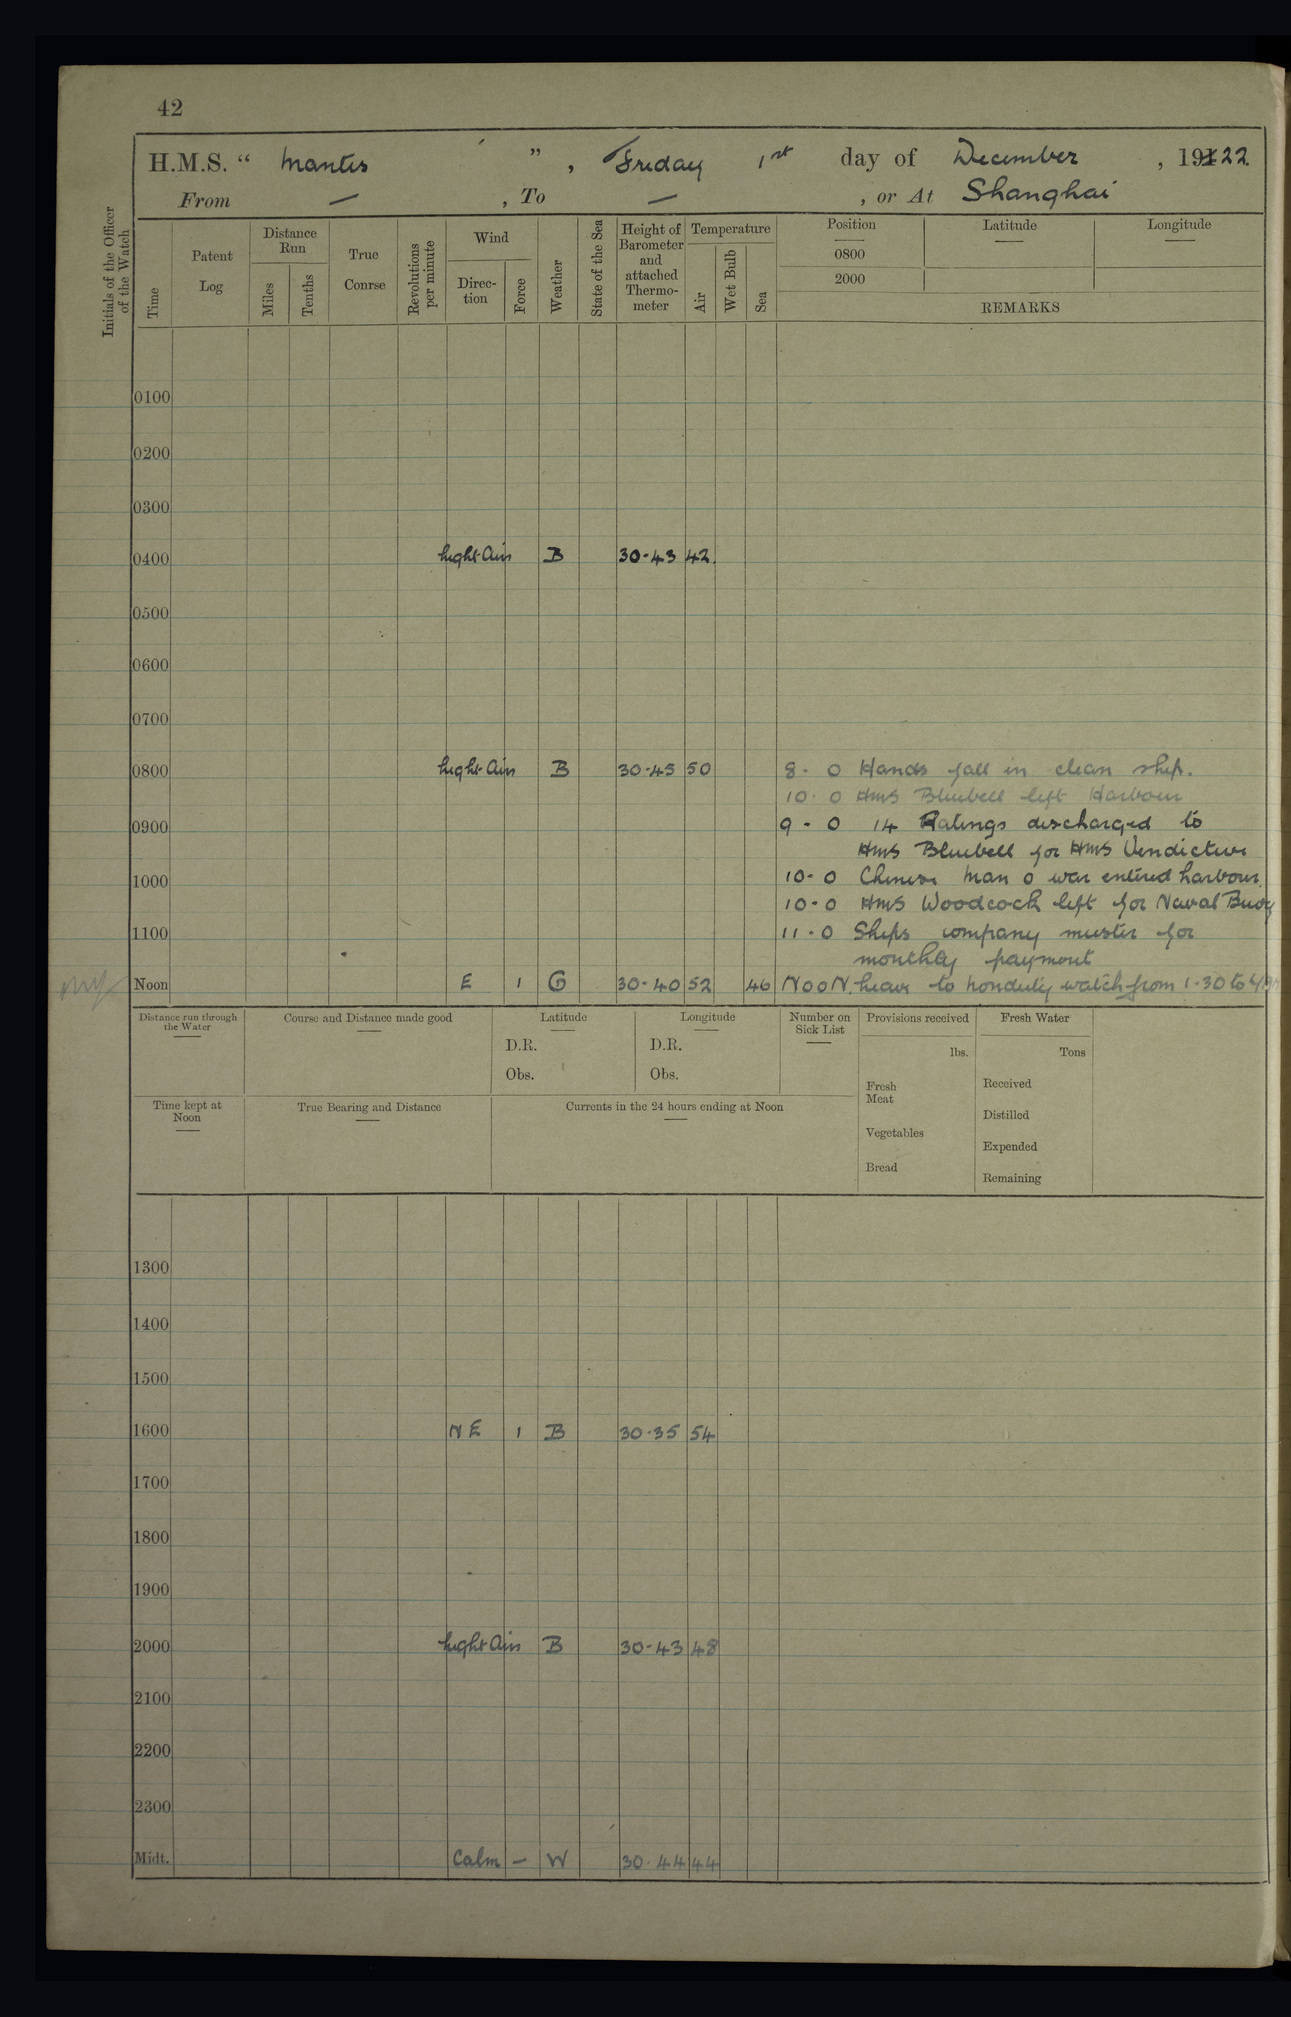 42
H.M.S. " Mantis " , Friday 1st day of December , 19122
From — , To — , or At Shanghai
Initials of the Officer of the Watch
Time
Patent Log
Distance Run
Miles
Tenths
True Course
Revolutions per minute
Wind
Direc-tion
Force
Weather
State of the Sea
Height of Barometer and attached Thermo-meter
Temperature
Air
Wet Bulb
Sea
Position
Latitude
Longitude
0800
2000
REMARKS
0100
0200
0300
0400 Light Airs B 30·43 42
0500
0600
0700
0800 Light Airs B 30·45 50 8·0 Hands fall in clean ship.
10·0 HMS Bluebell left Harbour
0900 9·0 14 Ratings discharged to
HMS Bluebell for HMS Vindictive
1000 10·0 Chinese Man o war entered harbour.
10·0 HMS Woodcock left for Naval Buoy
1100 11·0 Ships company muster for
monthly payment
Noon E 1 G 30·40 52 46 Noon. Leave to nonduty watch from 1·30 to
Distance run through the Water
Course and Distance made good
Latitude
D.R.
Obs.
Longitude
D.R.
Obs.
Number on Sick List
Provisions received
lbs.
Fresh Meat
Vegetables
Bread
Fresh Water
Tons
Received
Distilled
Expended
Remaining
Time kept at Noon
True Bearing and Distance
Currents in the 24 hours ending at Noon
1300
1400
1500
1600 NE 1 B 30·35 54
1700
1800
1900
2000 Light Airs B 30·43 48
2100
2200
2300
Midt. Calm — W 30·44 44